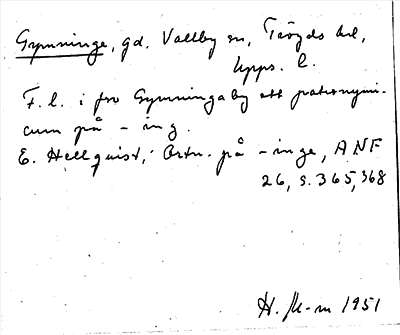 Gymninge, gd. Vallby sn, Trögds hd,
Upps. l.
F. l. i fro Gymningaby ett patronymi-
cum på - ing.
E. Hellquist, Ortn. på - inge, ANF
26, s. 365, 368
H. 1951